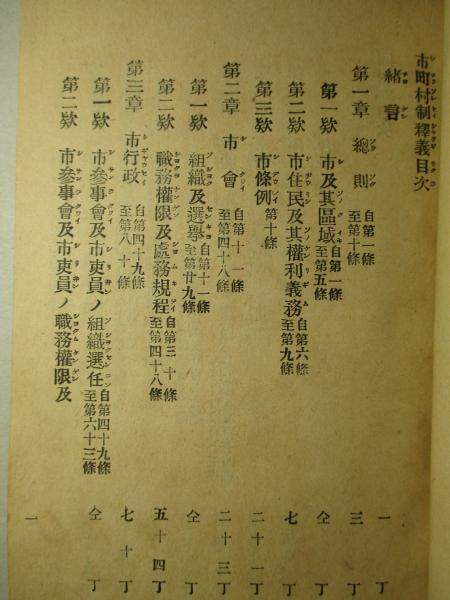 市町村制釋義目次
緒言 一丁
第一章 總則 自第一條至第十條 三丁
第一欵 市及其區域 自第一條至第五條 仝丁
第二欵 市住民及其權利義務 自第六條至第九條 七丁
第三欵 市條例 第十條 二十一丁
第二章 市會 自第十一條至第四十八條 二十三丁
第一欵 組織及選擧 自第十一條至第廿九條 仝
第二欵 職務權限及處務規程 自第三十條至第四十八條 五十四丁
第三章 市行政 自第四十九條至第八十條 七十丁
第一欵 市參事會及市吏員ノ組織選任 自第四十九條至第六十三條 仝丁
第二欵 市參事會及市吏員ノ職務權限及
一